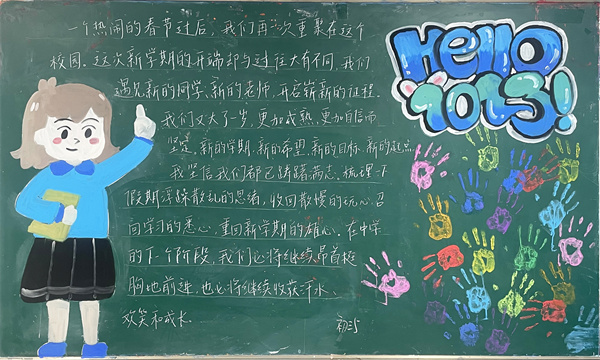 一个热闹的春节过后,我们再一次重聚在这个
校园。这次新学期的开端却与过往大有不同,我们
遇见新的同学、新的老师,开启崭新的征程。
我们又大了一岁,更加成熟,更加自信而
坚定。新的学期,新的希望,新的目标,新的起点
我坚信我们都已踌躇满志、梳理一下
假期浮躁散乱的思绪,收回散慢的玩心,召
回学习的恒心,重回新学期的雄心。在中学
的下一个阶段,我们必将继续昂首挺
胸地前进,也必将继续收获汗水、
欢笑和成长。
Hello
2023!